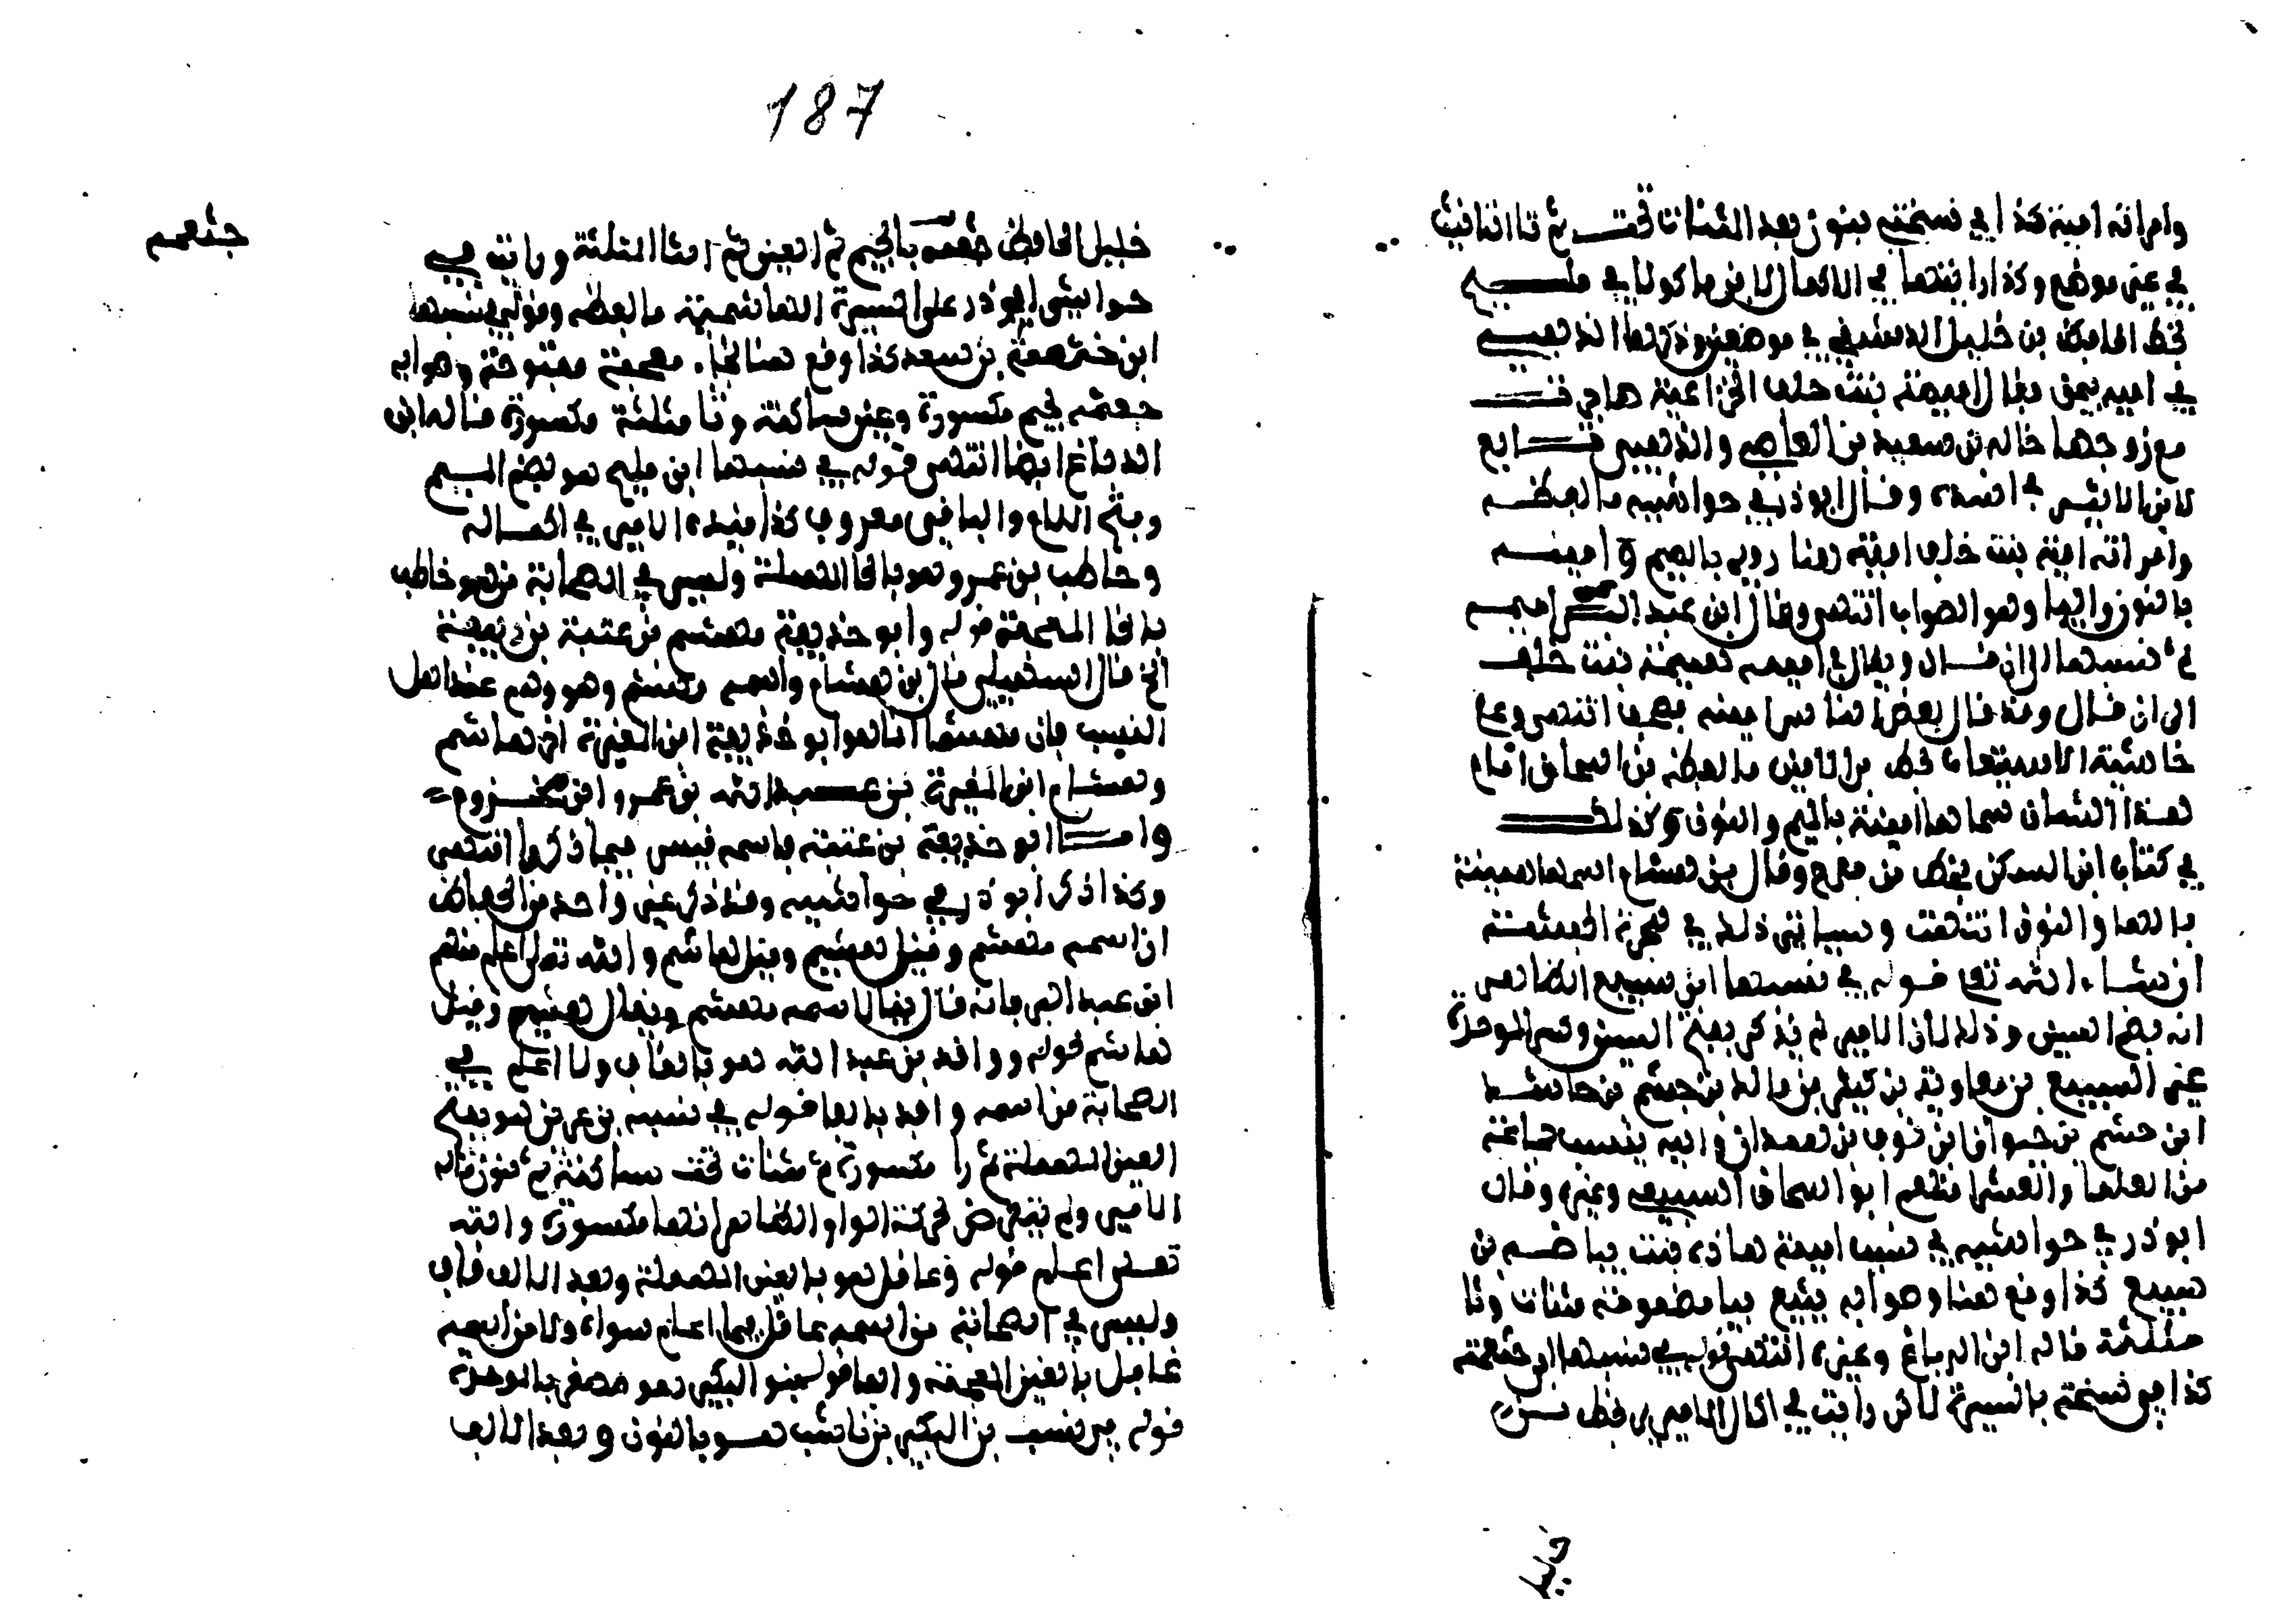 وامراته امينة كذا في نسختي بنون بعد المثناة تحت ثم تا التانيث
في غير موضع وكذا رايتها في الاكمال لابن ماكولا في مليح
بخط الحافظ بن خليل الدمشقي في موضعين وذكرها الذهبي
في اميه بميم فقال اميمة بنت خلف الخزاعية هاجرت
مع زوجها خالد بن سعيد بن العاصي والذهبي تابع
لابن الاثير في اسده وقال ابو ذر في حواشيه ما لفظه
وامراته امينة بنت خلف امينة هنا روي بالميم و امينه
بالنون واليا وهو الصواب انتهى وقال ابن عبد البر اميمه
ثم نسبها الى ان قال ويقال في اميمه هميمة بنت خلف
الى ان قال وقد قال بعض الناس امينه فصحف انتهى وعلى
حاشية الاستيعاب بخط بن الامين ما لفظه بن اسحاق امام
هذا الشان سماها امينة بالميم والنون وكذلك
في كتاب ابن السكن بخط بن مفرج وقال بن هشام اسمها همينة
بالها والنون انتهت وسياتي ذلك في هجرة الحبشة
ان شاء الله تعالى قوله في نسبها ابن سبيع الظاهر
انه بضم السين وذلك لان الامير لم يذكر بفتح السين وكسر الموحدة
غير السبيع بن معاوية بن كثير بن مالك بن جشم بن حاشد
ابن حشم بن خيوان ابن نوف بن همدان واليه ينسب جماعة
من العلما والفقها منهم ابو اسحاق السبيعي وغيره وقال
ابو ذر في حواشيه في نسب امينة هاذه بنت بياضه بن
سبيع كذا وقع هنا وصوابه يثيع بيا مضمومة مثناة وثا
مثلثة قاله ابن الدباغ وغيره انتهى قوله في نسبها ابن خثعمة
كذا في نسختي بالسيرة لاكن رايت في اكمال الامير بخط بن
خليل
187
خليل الحافظ جثعمة بالجيم ثم العين ثم الثا المثلثة ورايت في
جثعمه
حواشي ابو ذر على السيرة الهاشمية ما لفظه وقوله في نسبها
ابن خثعمة بن سعد كذا وقع هنا بالخاء معجمة مفتوحة وصوابه
جعثمه بجيم مكسورة وعين ساكنة وثا مثلثة مكسورة قاله ابن
الدباغ ايضا انتهى قوله في نسبها ابن مليح هو بضم الميم
وفتح اللام والباقي معروف كذا قيده الامير في اكماله
وحاطب بن عمرو هو بالحا المهملة وليس في الصحابة من هو خاطب
بالخا المعجمة قوله وابو حذيفة مهشم بن عتبة بن ربيعة
الخ قال السهيلي قال ابن هشام واسمه مهشم وهو وهم عند اهل
النسب فان مهشما انما هو ابو حذيفة ابن المغيرة اخي هاشم
وهشام ابني المغيرة بن عبد الله بن عمرو ابن مخزوم
واما ابو حذيفة بن عتبة فاسمه قيس فيما ذكروا انتهى
وكذا ذكر ابو ذر في حواشيه وقد ذكر غير واحد من الحفاظ
ان اسمه مهشم وقيل هشيم وقيل هاشم والله تعالى اعلم منهم
ابن عبد البر فانه قال يقال اسمه مهشم ويقال هشيم وقيل
هاشم قوله وواقد بن عبد الله هو بالقاف ولا اعلم في
الصحابة من اسمه وافد بالفا قوله في نسبه بن عرين هو بفتح
العين المهملة ثم را مكسورة ثم مثناة تحت ساكنة ثم نون قاله
الامير ولم يتعرض لحركة الراء والظاهر انها مكسورة والله
تعالى اعلم قوله وعاقل هو بالعين المهملة وبعد الالف قاف
وليس في الصحابة من اسمه عاقل فيما اعلم سواه ولا من اسمه
غافل بالغين المعجمة والفا قوله بنو البكير هو مصغر بالموحدة
قوله في نسب بن البكير بن ناشب هو بالنون وبعد الالف